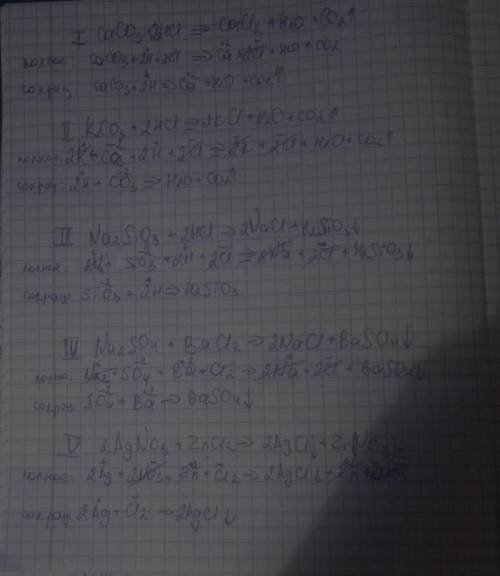 I CaCO3+2HCl => CaCl2 + H2O + CO2↑
полное: CaCO3+2H+2Cl => Ca+2Cl+H2O+CO2
сокращ: CaCO3+2H=>Ca+H2O+CO2↑
II K2CO3+2HCl=>2KCl+H2O+CO2↑
полное: 2K+CO3+2H+2Cl=>2K+2Cl+H2O+CO2↑
сокращ: 2H+CO3=>H2O+CO2↑
III Na2SiO3+2HCl->2NaCl+H2SiO3↓
полное: 2Na+SiO3+2H+2Cl=>2Na+2Cl+H2SiO3↓
сокращ: SiO3+2H=>H2SiO3
IV Na2SO4+BaCl2->2NaCl+BaSO4↓
полное: Na2+SO4+Ba+Cl2->2Na+2Cl+BaSO4↓
сокращ: SO4+Ba->BaSO4↓
V 2AgNO3+ZnCl2->2AgCl↓+Zn(NO3)2
полное: 2Ag+2NO3+Zn+Cl2->2AgCl↓+Zn+2NO3
сокращ: 2Ag+Cl2->2AgCl↓